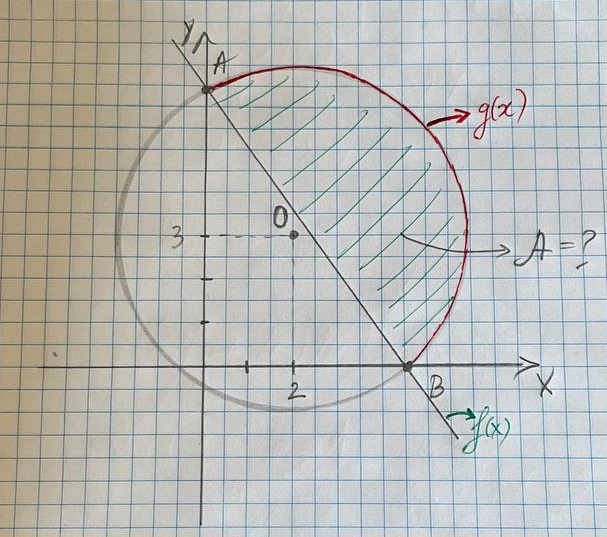 y
A
g(x)
O
3
A = ?
2
B
X
f(x)